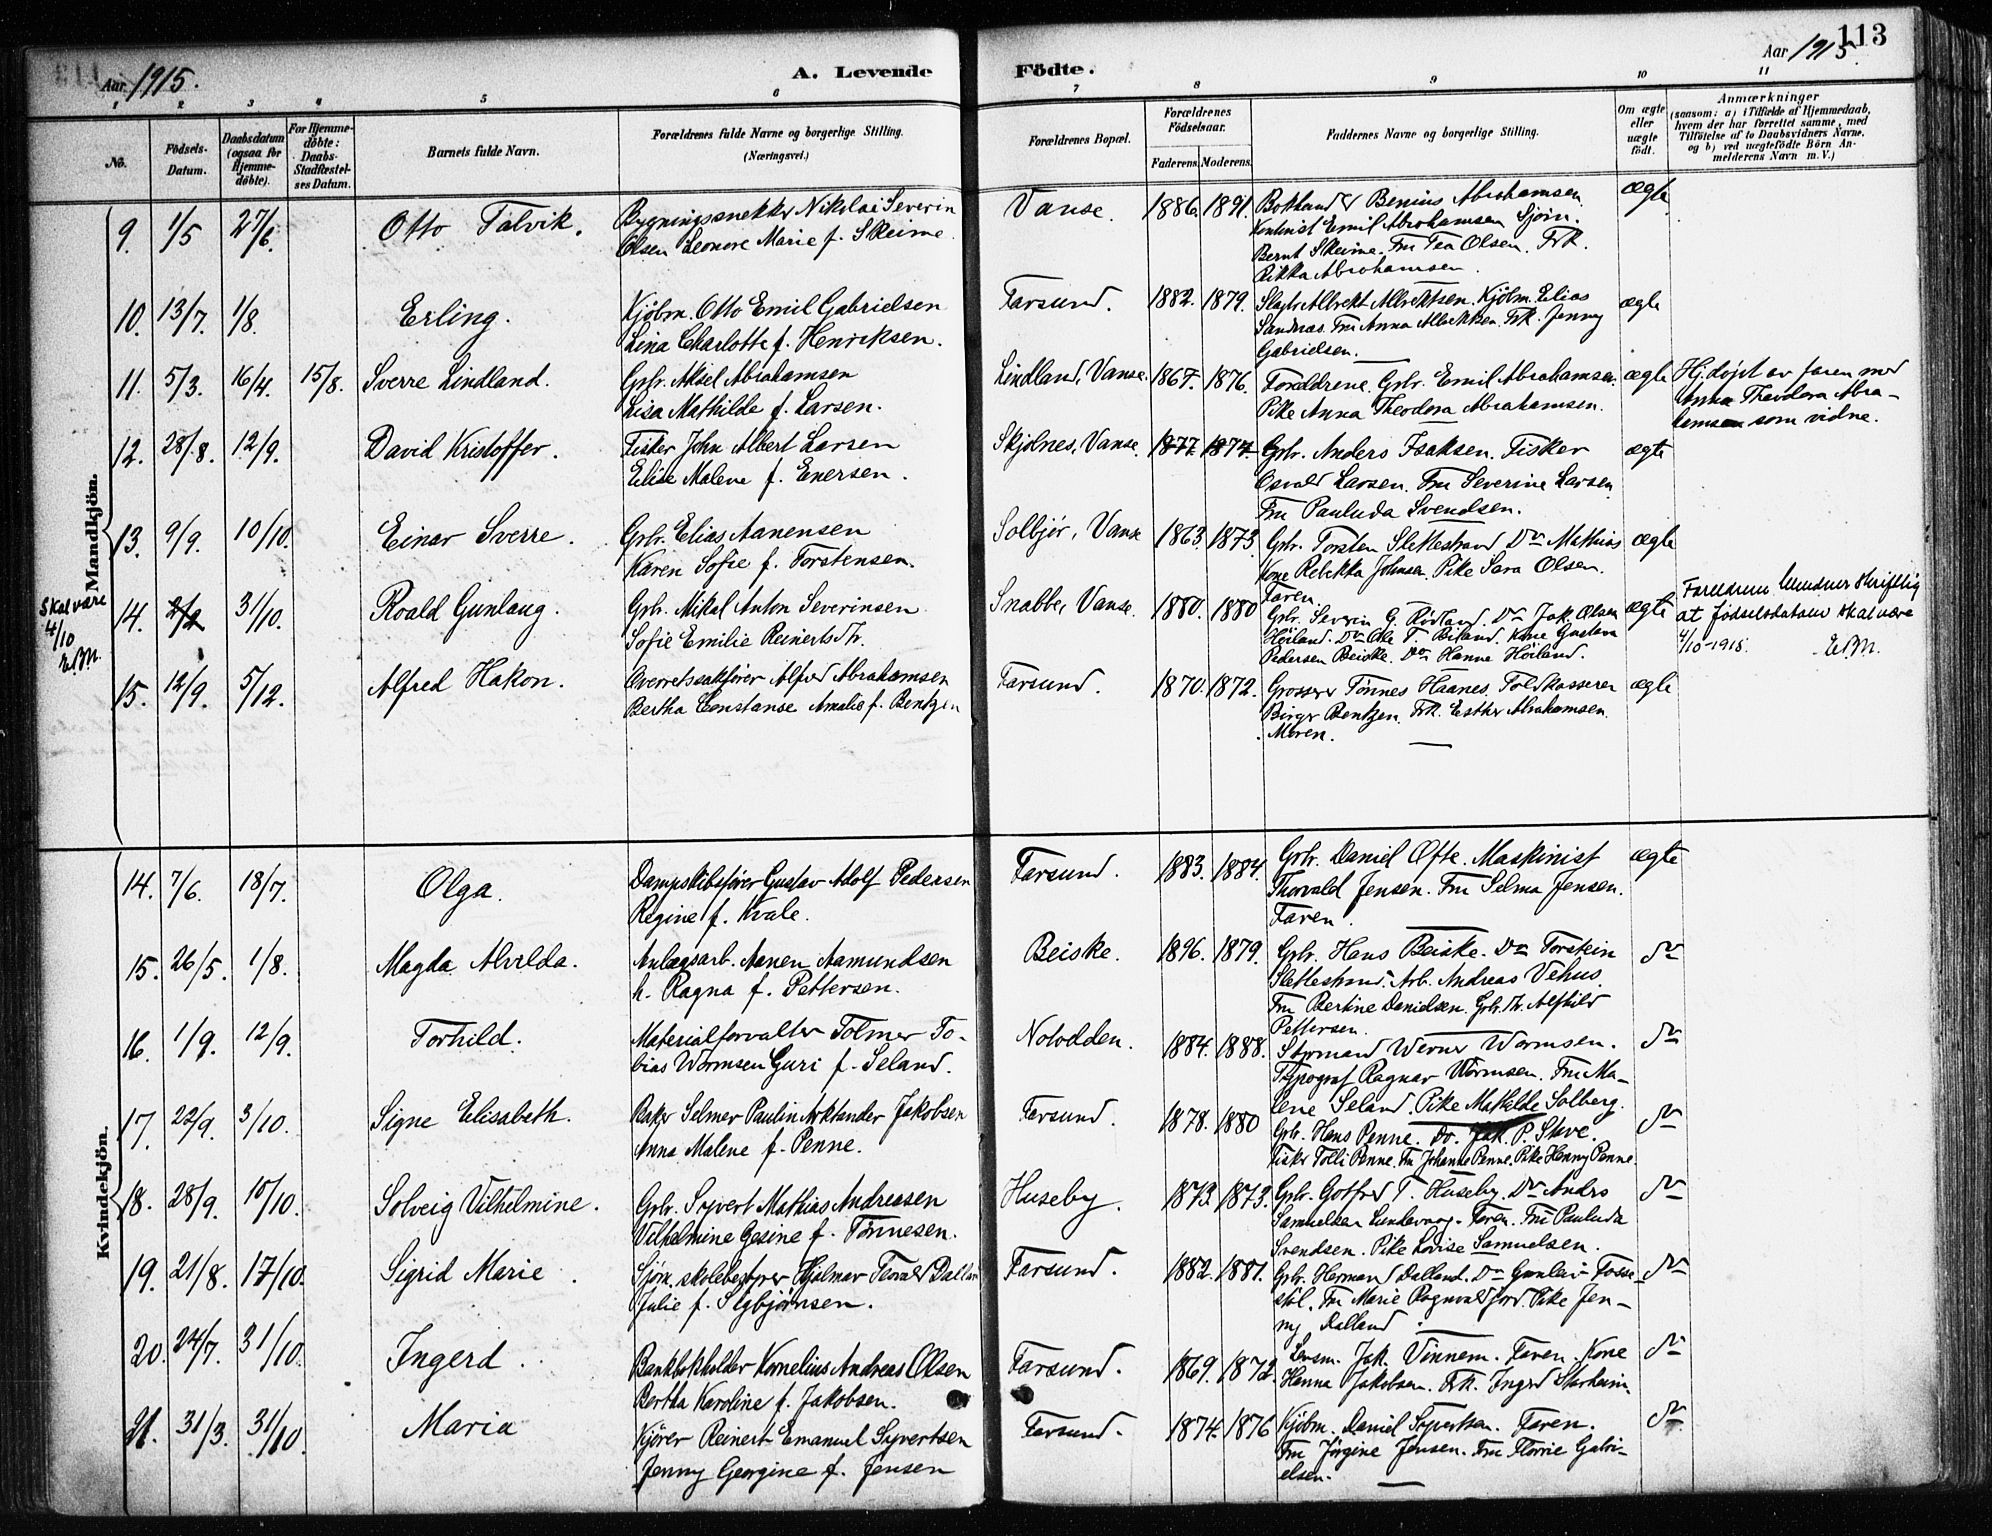 113
Aar 1915.
A. Levende
Födte.
Aar 1915.
1 2 3 4 5 6 7 8 9 10 11
No.
Födsels-
Datum.
Daabsdatum
(ogsaa for
Hjemme-
döbte).
For Hjemme-
döbte:
Daabs-
Stadfæstel-
ses Datum.
Barnets fulde Navn.
Forældrenes fulde Navne og borgerlige Stilling.
(Næringsvei.)
Forældrenes Bopæl.
Forældrenes
Födselsaar.
Faderens. Moderens.
Faddernes Navne og borgerlige Stilling.
Om ægte
eller
uægte
födt.
Anmærkninger
(saasom: a) i Tilfælde af Hjemmedaab,
hvem der har forrettet samme, med
Tilföielse af to Daabsvidners Navne,
og b) ved uægtefödte Börn An-
melderens Navn m. V.)
Mandkjön.
9. 1/5 27/6 Otto Talvik. Bygningssnekker Nikolai Severin
Olsen Leonore Marie f. Skeime.
Vanse. 1886. 1891.
Benius Abrahamsen
Emil Abrahamsen Sjöin.
Bernt Skeime. Fru Tea Olsen. Frk.
Rikka Abrahamsen.
ægte
10. 13/7. 1/8. Erling. Kjöbm. Otto Emil Gabrielsen
Lina Charlotte f. Henriksen.
Farsund. 1882. 1879.
Kjöbm. Elias
Sandnæs. Fru Anna Frk. Jenny
Gabrielsen.
ægte
11. 5/3. 16/4. 15/8. Sverre Lindland. Grbr. Aksel Abrahamsen
Lisa Mathilde f. Larsen.
Lindland, Vanse. 1867. 1876.
Foreldrene. Grbr. Emil Abrahamsen.
Pike Anna Theodora Abrahamsen.
ægte
Hj. døpt av faren med
Anna Theodora Abra-
hamsen som vidne.
12. 28/8. 12/9. David Kristoffer. Fisker John Albert Larsen
Elise Malene f. Enersen.
Skjolnes, Vanse. 1877. 1874.
Grbr. Anders Isaksen. Fisker
Osvald Larsen. Fru Severine Larsen
Fru Pauluda Svendsen.
ægte
13. 9/9. 10/10. Einar Sverre. Grbr. Elias Aanensen
Karen Sofie f. Torstensen.
Solbjør, Vanse 1863. 1873.
Grbr. Torsten Slettestrand Do Mathias
Kone Rebekka Johnsen. Pike Sara Olsen.
Faren.
ægte
Skal være
4/10
E.B.M.
14. 2/2 31/10. Roald Gunlaug. Grbr. Mikal Anton Severinsen
Sofie Emilie Reinertsdtr.
Snabbe, Vanse. 1880. 1880
Grbr. Severin G. Rødland. Do Jak. Olsen
Høiland. Do Ole T. Biland. Kone Gustava
Pedersen Beiske. Do Hanne Høiland.
ægte
Foreldrene skriftlig
at fødselsdatum skal være
4/10-1915. E.B.M.
15. 12/9. 5/12. Alfred Hakon. Overretssakfører Alfred Abrahamsen
Bertha Constanse Amalie f. Bentzen
Farsund. 1870. 1872.
Grosserer Tönnes Haanes. Toldkasserer
Birger Bentzen. Frk. Esther Abrahamsen.
Moren.
ægte
Kvindekjön.
14. 7/6. 18/7. Olga. Dampskibsfører Gustav Adolf Pedersen
Regine f. Kvale.
Farsund. 1883. 1884.
Grbr. Daniel Ofte. Maskinist
Thorvald Jensen. Fru Selma Jensen.
Faren.
ægte
15. 26/5. 1/8. Magda Alvilda. Anlægsarb. Aanen Aamundsen
h. Ragna f. Pettersen.
Beiske. 1896. 1879.
Grbr. Hans Beiske. Do Torstein
Slettestrand. Arb. Andreas Vehus.
Fru Bertine Danielsen. Grbr. dtr. Alfhild
Pettersen.
Do
16. 1/9. 12/9. Torhild. Materialforvalter Tolmer To-
bias Wormsen Guri f. Seland.
Notodden. 1884. 1888.
Styrmand Werner Wormsen.
Typograf Ragnar Wormsen. Fru Ma-
lene Seland. Pike Mathilde Solberg.
Do
17. 22/9. 3/10. Signe Elisabeth. Baker Selmer Paulin Arktander Jakobsen
Anna Malene f. Penne.
Farsund. 1878. 1880
Grbr. Hans Penne. Do. Jak. P. Stave.
Fisker Tolli Penne. Fru Johanne Penne. Pike Henny Penne.
Do
18. 28/9. 10/10. Solveig Vilhelmine. Grbr. Syvert Mathias Andreasen
Vilhelmine Gesine f. Tønnesen.
Huseby. 1873. 1873.
Grbr. Gotfred T. Huseby. Do Andrs
Samuelsen Lundevaag. Faren. Fru Pauluda
Svendsen. Pike Lovise Samuelsen.
Do
19. 21/8. 17/10. Sigrid Marie. Sjöm. skolebestyrer Hjalmar Teoral Dalland
Julie f. Sigbjørnsen.
Farsund. 1882. 1881.
Grbr. Herman Dalland. Do Gunleiv Fosse-
støl. Fru Marie Ragnvaldjord. Pike Jen-
ny Dalland.
Do
20. 24/7. 31/10. Ingerd. Bankbokholder Kornelius Andreas Olsen
Bertha Karoline f. Jakobsen.
Farsund. 1869. 1872.
Lensm. Jak. Vinnem. Faren. Kone
Hanna Jakobsen. Frk. Ingerd Starheim.
Do
21. 31/3. 31/10. Maria Kjører Reinert Emanuel Syvertsen
Jenny Georgine f. Jensen
Farsund. 1874. 1876
Kjöbm. Daniel Syvertsen. Faren.
Fru Jørgine Jensen. Fru Florrie Gabri-
elsen.
Do